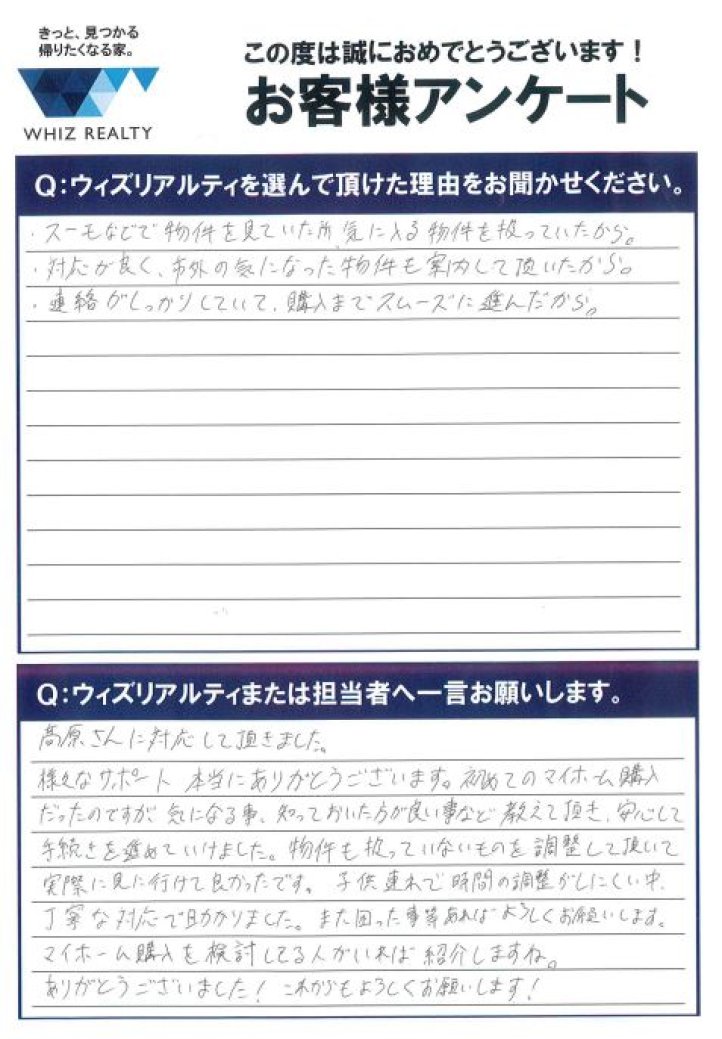 きっと、見つかる
帰りたくなる家。
WHIZ REALTY
この度は誠におめでとうございます！
お客様アンケート
Q:ウィズリアルティを選んで頂けた理由をお聞かせください。
・スーモなどで物件を見ていた所、気に入る物件を扱っていたから。
・対応が良く、市外の気になった物件も案内して頂いたから。
・連絡がしっかりしていて、購入までスムーズに進んだから。
Q:ウィズリアルティまたは担当者へ一言お願いします。
髙原さんに対応して頂きました。
様々なサポート 本当にありがとうございます。初めてのマイホーム購入
だったのですが、気になる事、知っておいた方が良い事など教えて頂き、安心して
手続きを進めていけました。物件も扱っていないものを調整して頂いて
実際に見に行けて良かったです。 子供連れで時間の調整がしにくい中、
丁寧な対応で助かりました。また困った事等あればよろしくお願いします。
マイホーム購入を検討してる人がいれば紹介しますね。
ありがとうございました！ これからもよろしくお願いします！